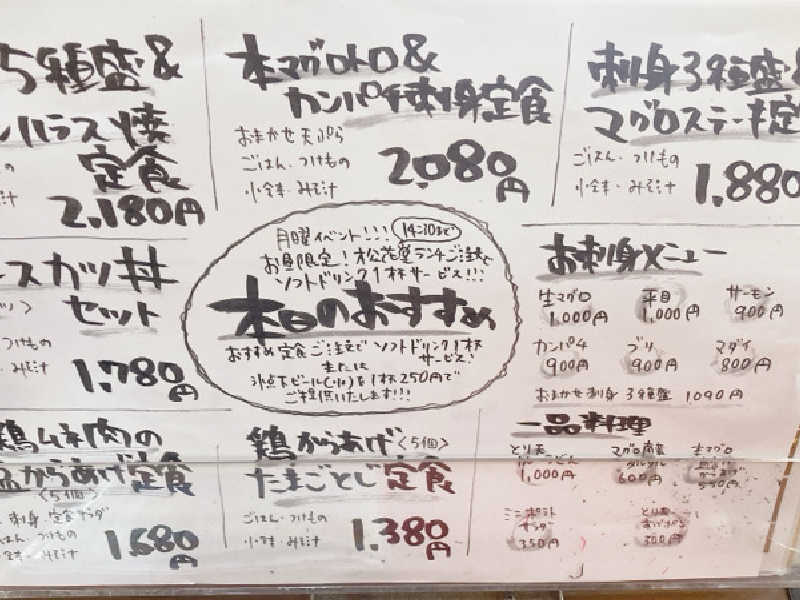 5種盛&
ハラス焼
定食
2,180円
本マグロトロ&
カンパチ刺身定食
おまかせ天ぷら
ごはん・つけもの
小全本・みそ汁
2,080円
刺身3種盛&
マグロステーキ定
ごはん・つけもの
小全本・みそ汁
1,880
月曜イベント!!! 14:30まで
お昼限定!松花堂ランチご注文で
ソフトドリンク1杯サービス!!!
本日のおすすめ
おすすめ定食ご注文でソフトドリンク1杯
サービス!
または
氷点下ビール(小)を1杯250円で
ご提供いたします!!!
スカツ丼
セット
つけもの
みそ汁
1,780円
お刺身メニュー
生マグロ 平目 サーモン
1,000円 1,000円 900円
カンパチ ブリ マダイ
900円 900円 800円
おまかせ刺身3種盛 1090円
一品料理
とり天 マグロ 生マグロ
1,000円 600円
サラダ
350円 300円
鶏ムネ肉の
からあげ定食
〈5個〉
刺身・定食サラダ
はん・つけもの
小全本・みそ汁
1,680円
鶏からあげ〈5個〉
たまごとじ定食
ごはん・つけもの
小全本・みそ汁
1,380円